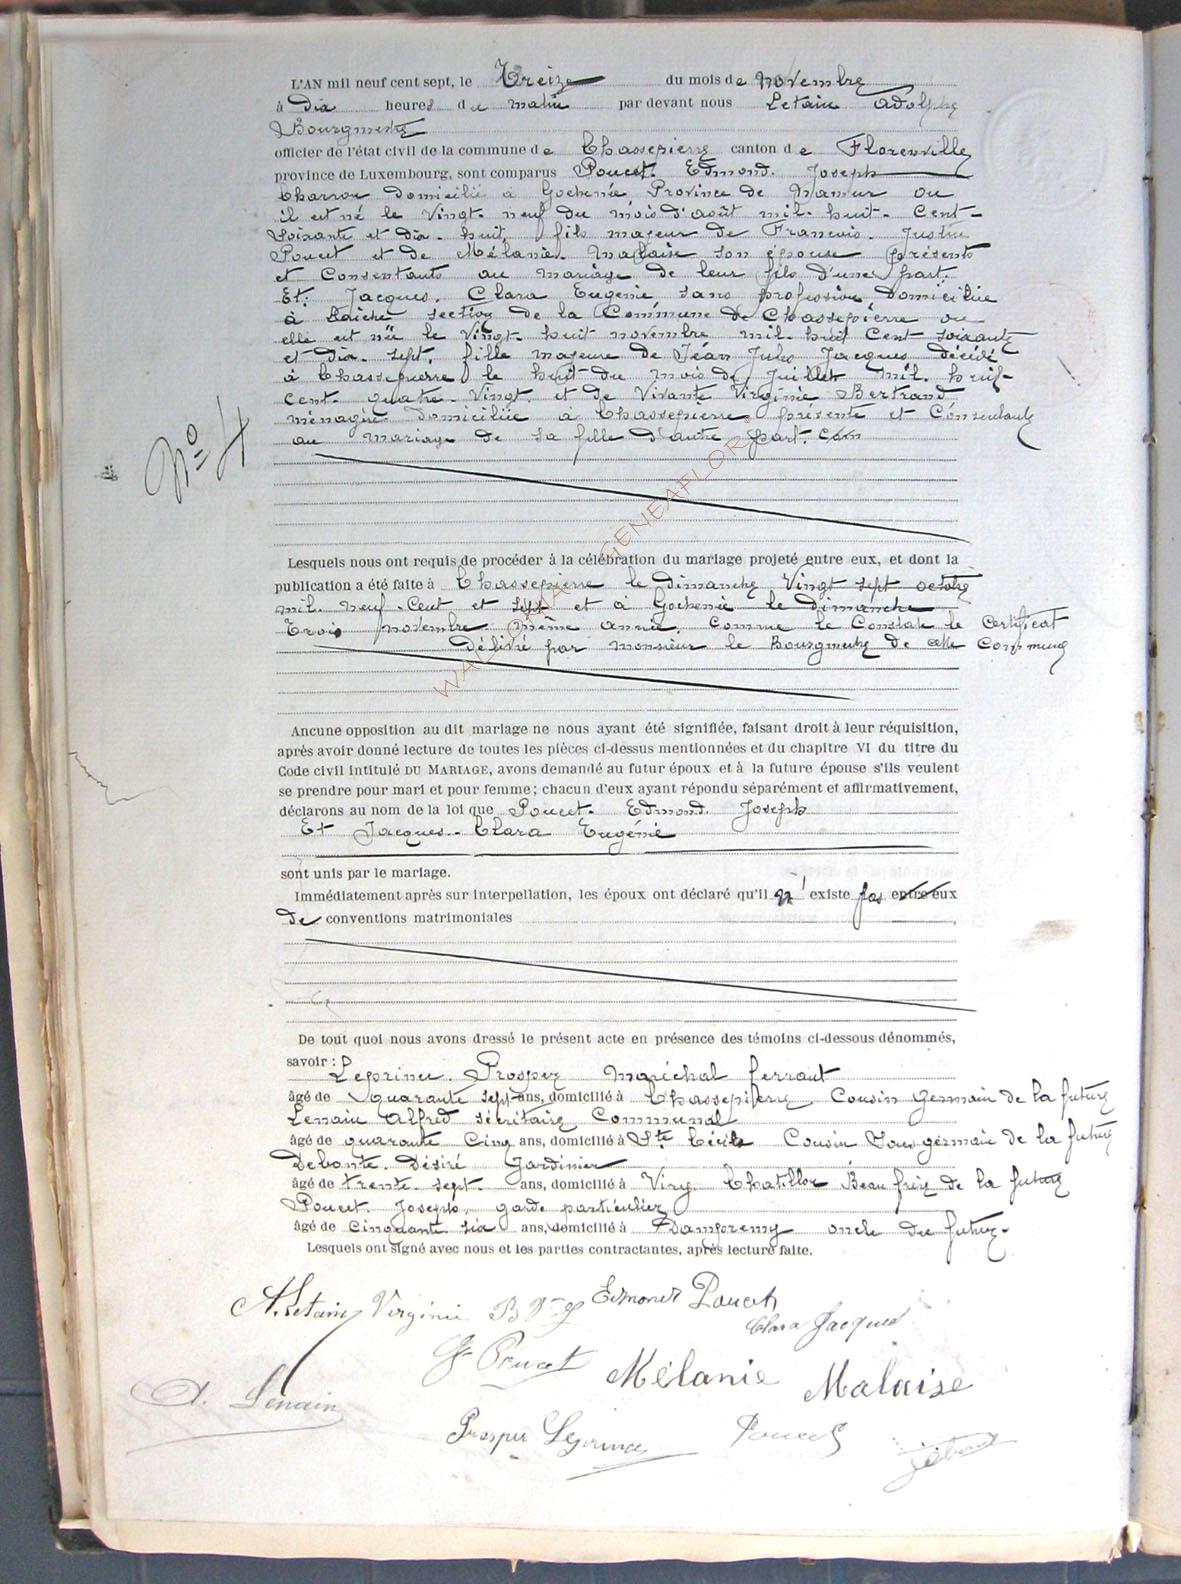 L'AN mil neuf cent sept, le Treize du mois de Novembre
à Dix heures du matin par devant nous Letain Adolphe
Bourgmestre
officier de l'état civil de la commune de Chassepierre canton de Florenville
province de Luxembourg, sont comparus Poucet. Edmond. Joseph
Charron domicilié à Gochenée Province de Namur ou
il est né le Vingt-neuf du mois d'août mil-huit-Cent-
Soixante et dix-huit, fils majeur de Francois-Justin
Poucet et de Mélanie Malaise son épouse présents
et Consentants au mariage de leur fils d'une part.
Et: Jacques. Clara Eugénie sans profession domiciliée
à Laiche section de la Commune de Chassepierre ou
elle est née le Vingt-huit novembre mil-huit Cent soixante
et dix-sept, fille majeure de Jean Jules Jacques décédé
à Chassepierre le huit du mois de Juillet mil-huit-
Cent-quatre-Vingt, et de Virginie Bertrand
ménagère domiciliée à Chassepierre présente et Consentante
au mariage de sa fille d'autre part.
N° 4
Lesquels nous ont requis de procéder à la célébration du mariage projeté entre eux, et dont la
publication a été faite à Chassepierre le dimanche Vingt sept octobre
mil-neuf-Cent et sept et à Gochenée le dimanche
Trois novembre même année. Comme le Constate le Certificat
Délivré par Monsieur le Bourgmestre de cette Commune
WALLONIA GENEAFLOR
Ancune opposition au dit mariage ne nous ayant été signifiée, faisant droit à leur réquisition,
après avoir donné lecture de toutes les pièces ci-dessus mentionnées et du chapitre VI du titre du
Code civil intitulé DU MARIAGE, avons demandé au futur époux et à la future épouse s'ils veulent
se prendre pour mari et pour femme; chacun d'eux ayant répondu séparément et affirmativement,
déclarons au nom de la loi que Poucet. Edmond. Joseph
Et Jacques-Clara Eugénie
sont unis par le mariage.
Immédiatement après sur interpellation, les époux ont déclaré qu'il n' existe pas entre eux
de conventions matrimoniales
De tout quoi nous avons dressé le présent acte en présence des témoins ci-dessous dénommés,
savoir: Leprince. Prosper Maréchal ferrant
âgé de Quarante sept ans, domicilié à Chassepierre Cousin Germain de la future
Lenain Alfred sécrétaire Communal
âgé de quarante Cinq ans, domicilié à Ste Cécile Cousin Sous germain de la future
Debonte. Désiré Jardinier
âgé de trente-sept- ans, domicilié à Viry Chatillon Beau frère de la future
Poucet. Joseph, garde particulier
âgé de Cinquante six ans, domicilié à Dampremy oncle du futur.
Lesquels ont signé avec nous et les parties contractantes, après lecture faite.
A. Letain Virginie Edmond Poucet
Clara Jacques
Poucet Mélanie Malaise
A. Lenain
Prosper Leprince Poucet